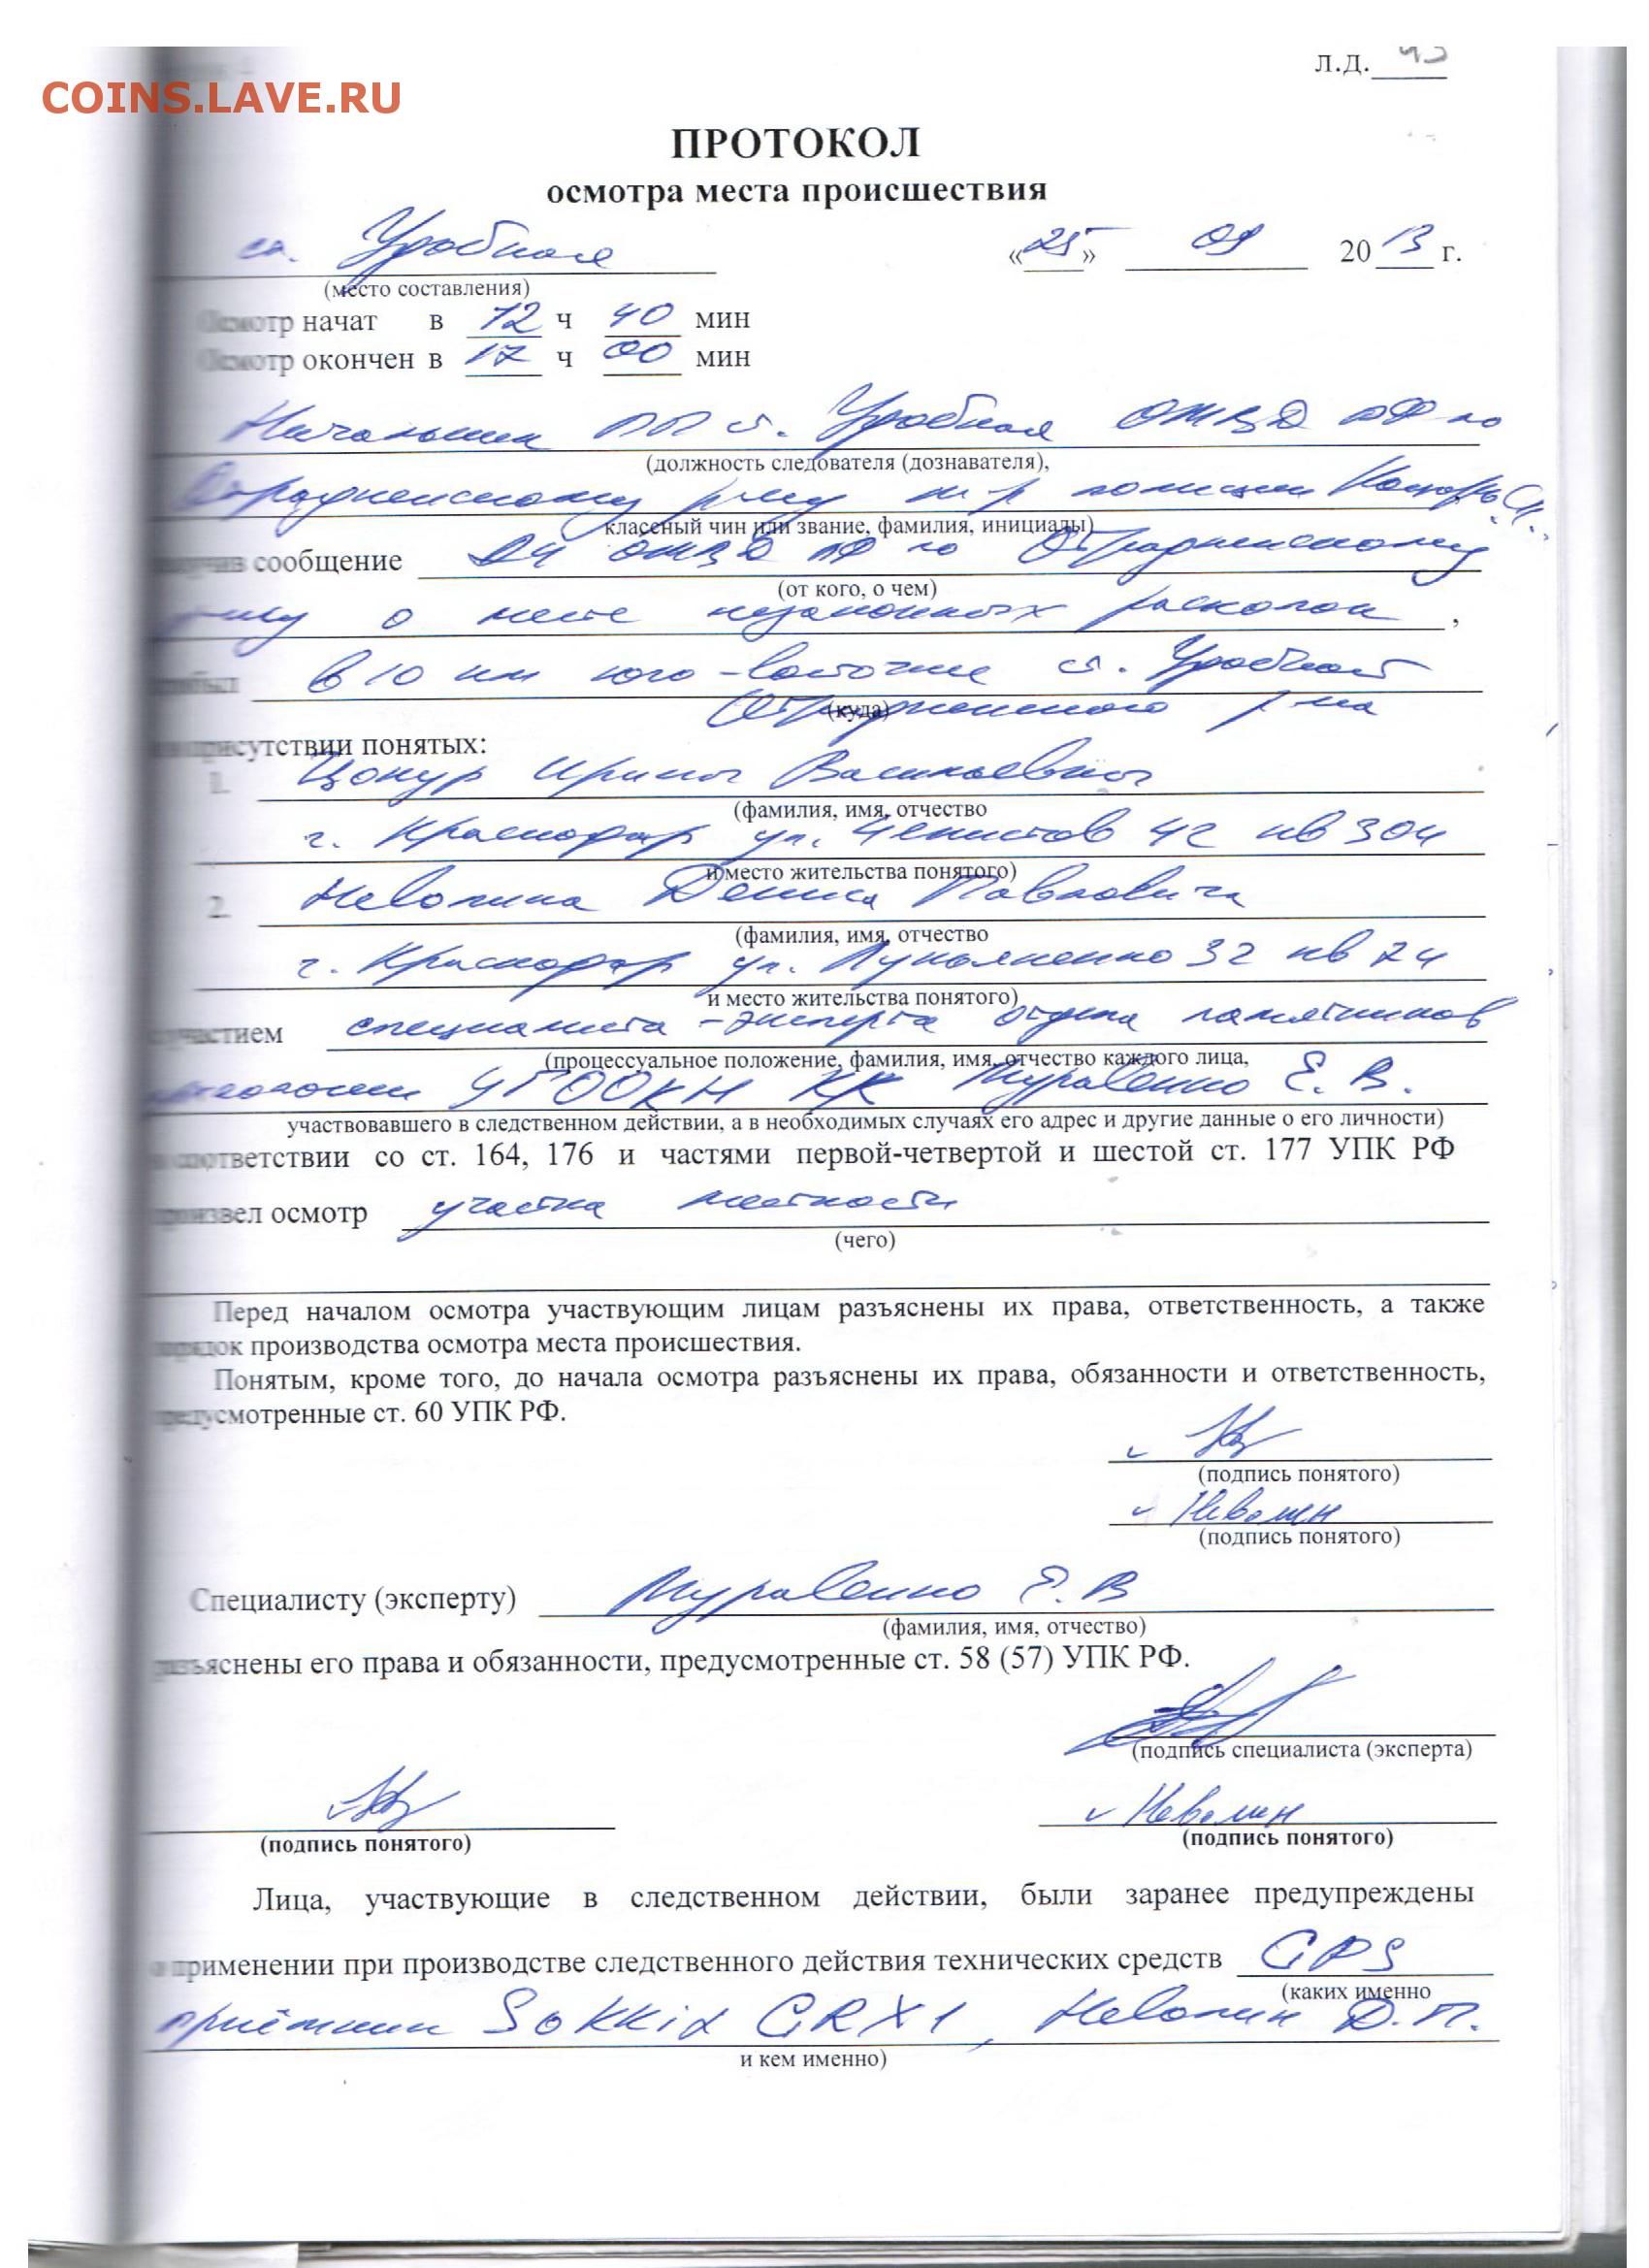 COINS.LAVE.RU
Л.Д. 43
ПРОТОКОЛ
осмотра места происшествия
ст. Удобная «25» 09 2013 г.
(место составления)
Осмотр начат в 12 ч 40 мин
Осмотр окончен в 17 ч 00 мин
Начальник ПП ст. Удобная ОМВД РФ по
(должность следователя (дознавателя),
Отрадненскому р-ну м-р полиции
классный чин или звание, фамилия, инициалы)
получив сообщение ДЧ ОМВД РФ по Отрадненскому
(от кого, о чем)
р-ну о месте незаконных раскопок ,
прибыл в 10 км юго-восточнее ст. Удобной
(куда) Отрадненского р-на
в присутствии понятых:
1. Цокур Ирины Васильевны
(фамилия, имя, отчество
г. Краснодар ул. Чекистов 42 кв 304
и место жительства понятого)
2. Неволина Дениса Павловича
(фамилия, имя, отчество
г. Краснодар ул. Лукьяненко 32 кв 24
и место жительства понятого)
с участием специалиста-эксперта отдела памятников
(процессуальное положение, фамилия, имя, отчество каждого лица,
археологии УГООКН КК Муравенко Е. В.
участвовавшего в следственном действии, а в необходимых случаях его адрес и другие данные о его личности)
в соответствии со ст. 164, 176 и частями первой-четвертой и шестой ст. 177 УПК РФ
произвел осмотр участка местности
(чего)
Перед началом осмотра участвующим лицам разъяснены их права, ответственность, а также
порядок производства осмотра места происшествия.
Понятым, кроме того, до начала осмотра разъяснены их права, обязанности и ответственность,
предусмотренные ст. 60 УПК РФ.
(подпись понятого)
Неволин
(подпись понятого)
Специалисту (эксперту) Муравенко Е. В
(фамилия, имя, отчество)
разъяснены его права и обязанности, предусмотренные ст. 58 (57) УПК РФ.
(подпись специалиста (эксперта)
Неволин
(подпись понятого) (подпись понятого)
Лица, участвующие в следственном действии, были заранее предупреждены
о применении при производстве следственного действия технических средств GPS
(каких именно
приёмник Sokkia GRX1, Неволин Д.П.
и кем именно)